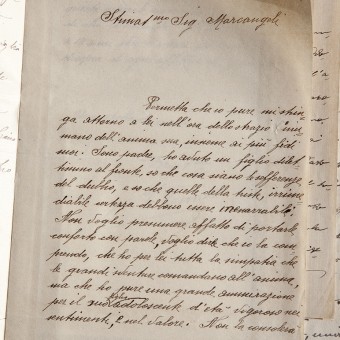 Stimat mo Sig Marcangeli
Permetta che io pure mi strin-
ga attorno a lei nell'ora dello strazio inu-
mano dell'anima sua, insieme ai più fidi
suoi. Sono padre, ho avuto un figlio dilet-
tissimo al fronte, so che cosa siano le sofferenze
del dubbio, e so che quelle della triste, irrime-
diabile certezza debbono essere inenarrabili.
Non voglio presumere affatto di portarle
conforto con parole, voglio dirle che io la com-
prendo, che ho per lei tutta la simpatia che
le grandi sventure comandano all'anima,
ma che ho pure una grande ammirazione
per il suo figlio adolescente d'età - vigoroso nei
sentimenti, e nel valore. Non la consolerà